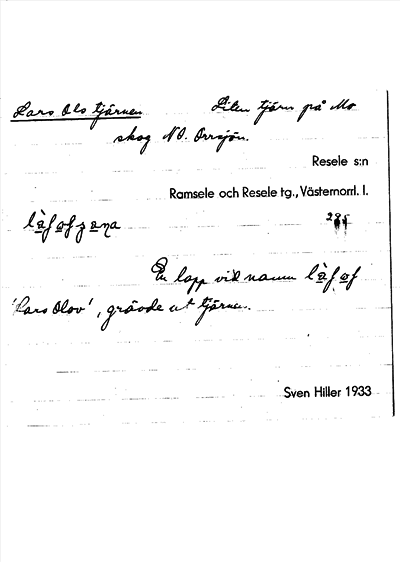 Lars Ols tjärnen Liten tjärn på Mo
skog NO. Orrsjön.
Resele s:n
Ramsele och Resele tg., Västernorrl. l.
En lapp vid namn
'Lars Olov', grävde ut tjärnen.
Sven Hiller 1933